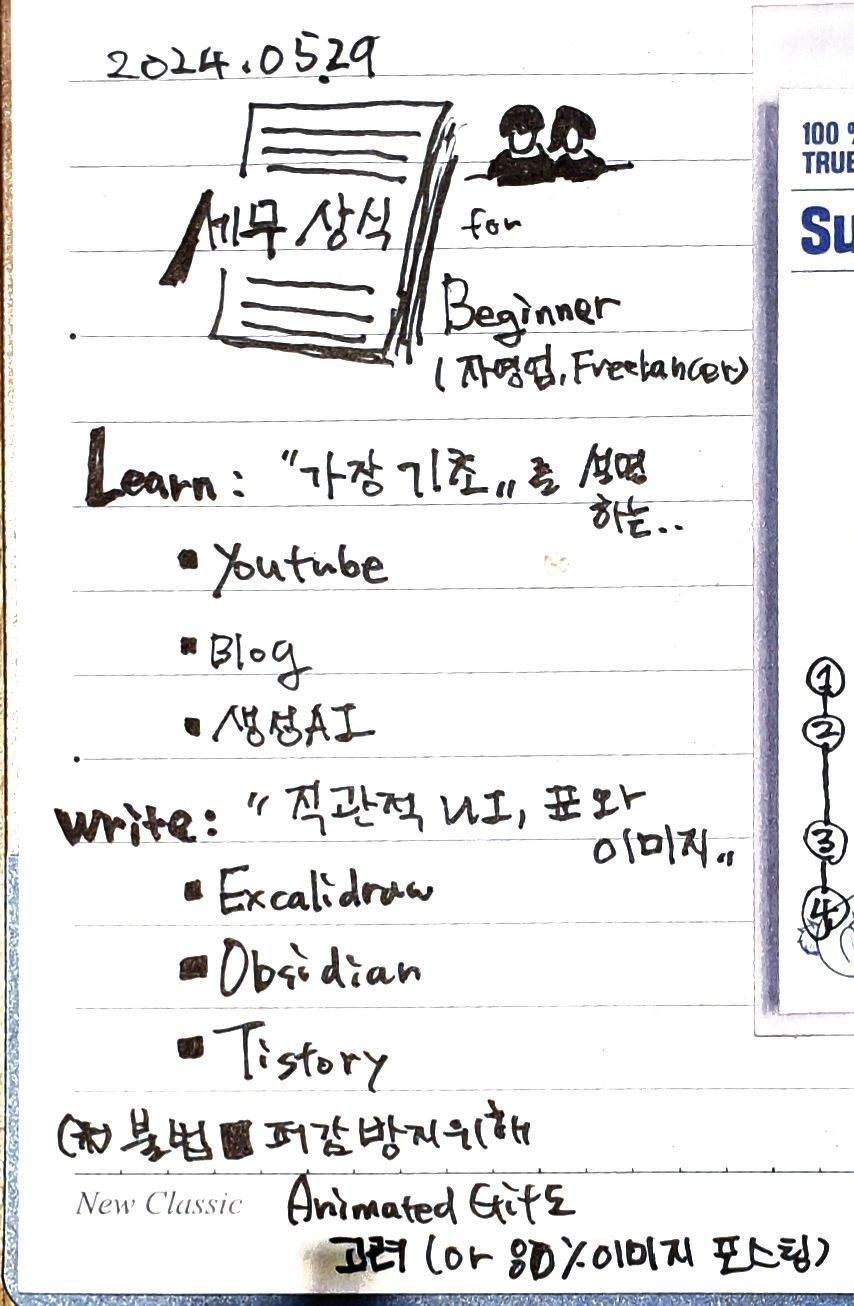 2024.05.29
세무 상식
for
Beginner
(자영업, Freelancer)
Learn: "가장 기초„를 설명
하는..
▪ Youtube
▪ Blog
▪ 생성AI
write: "직관적 UI, 표와
이미지„
▪ Excalidraw
▪ Obsidian
▪ Tistory
불법 퍼감방지위해
New Classic
Animated Gif도
고려 (or 80%이미지 포스팅)
100 %
TRUE
Su
①
②
③
④